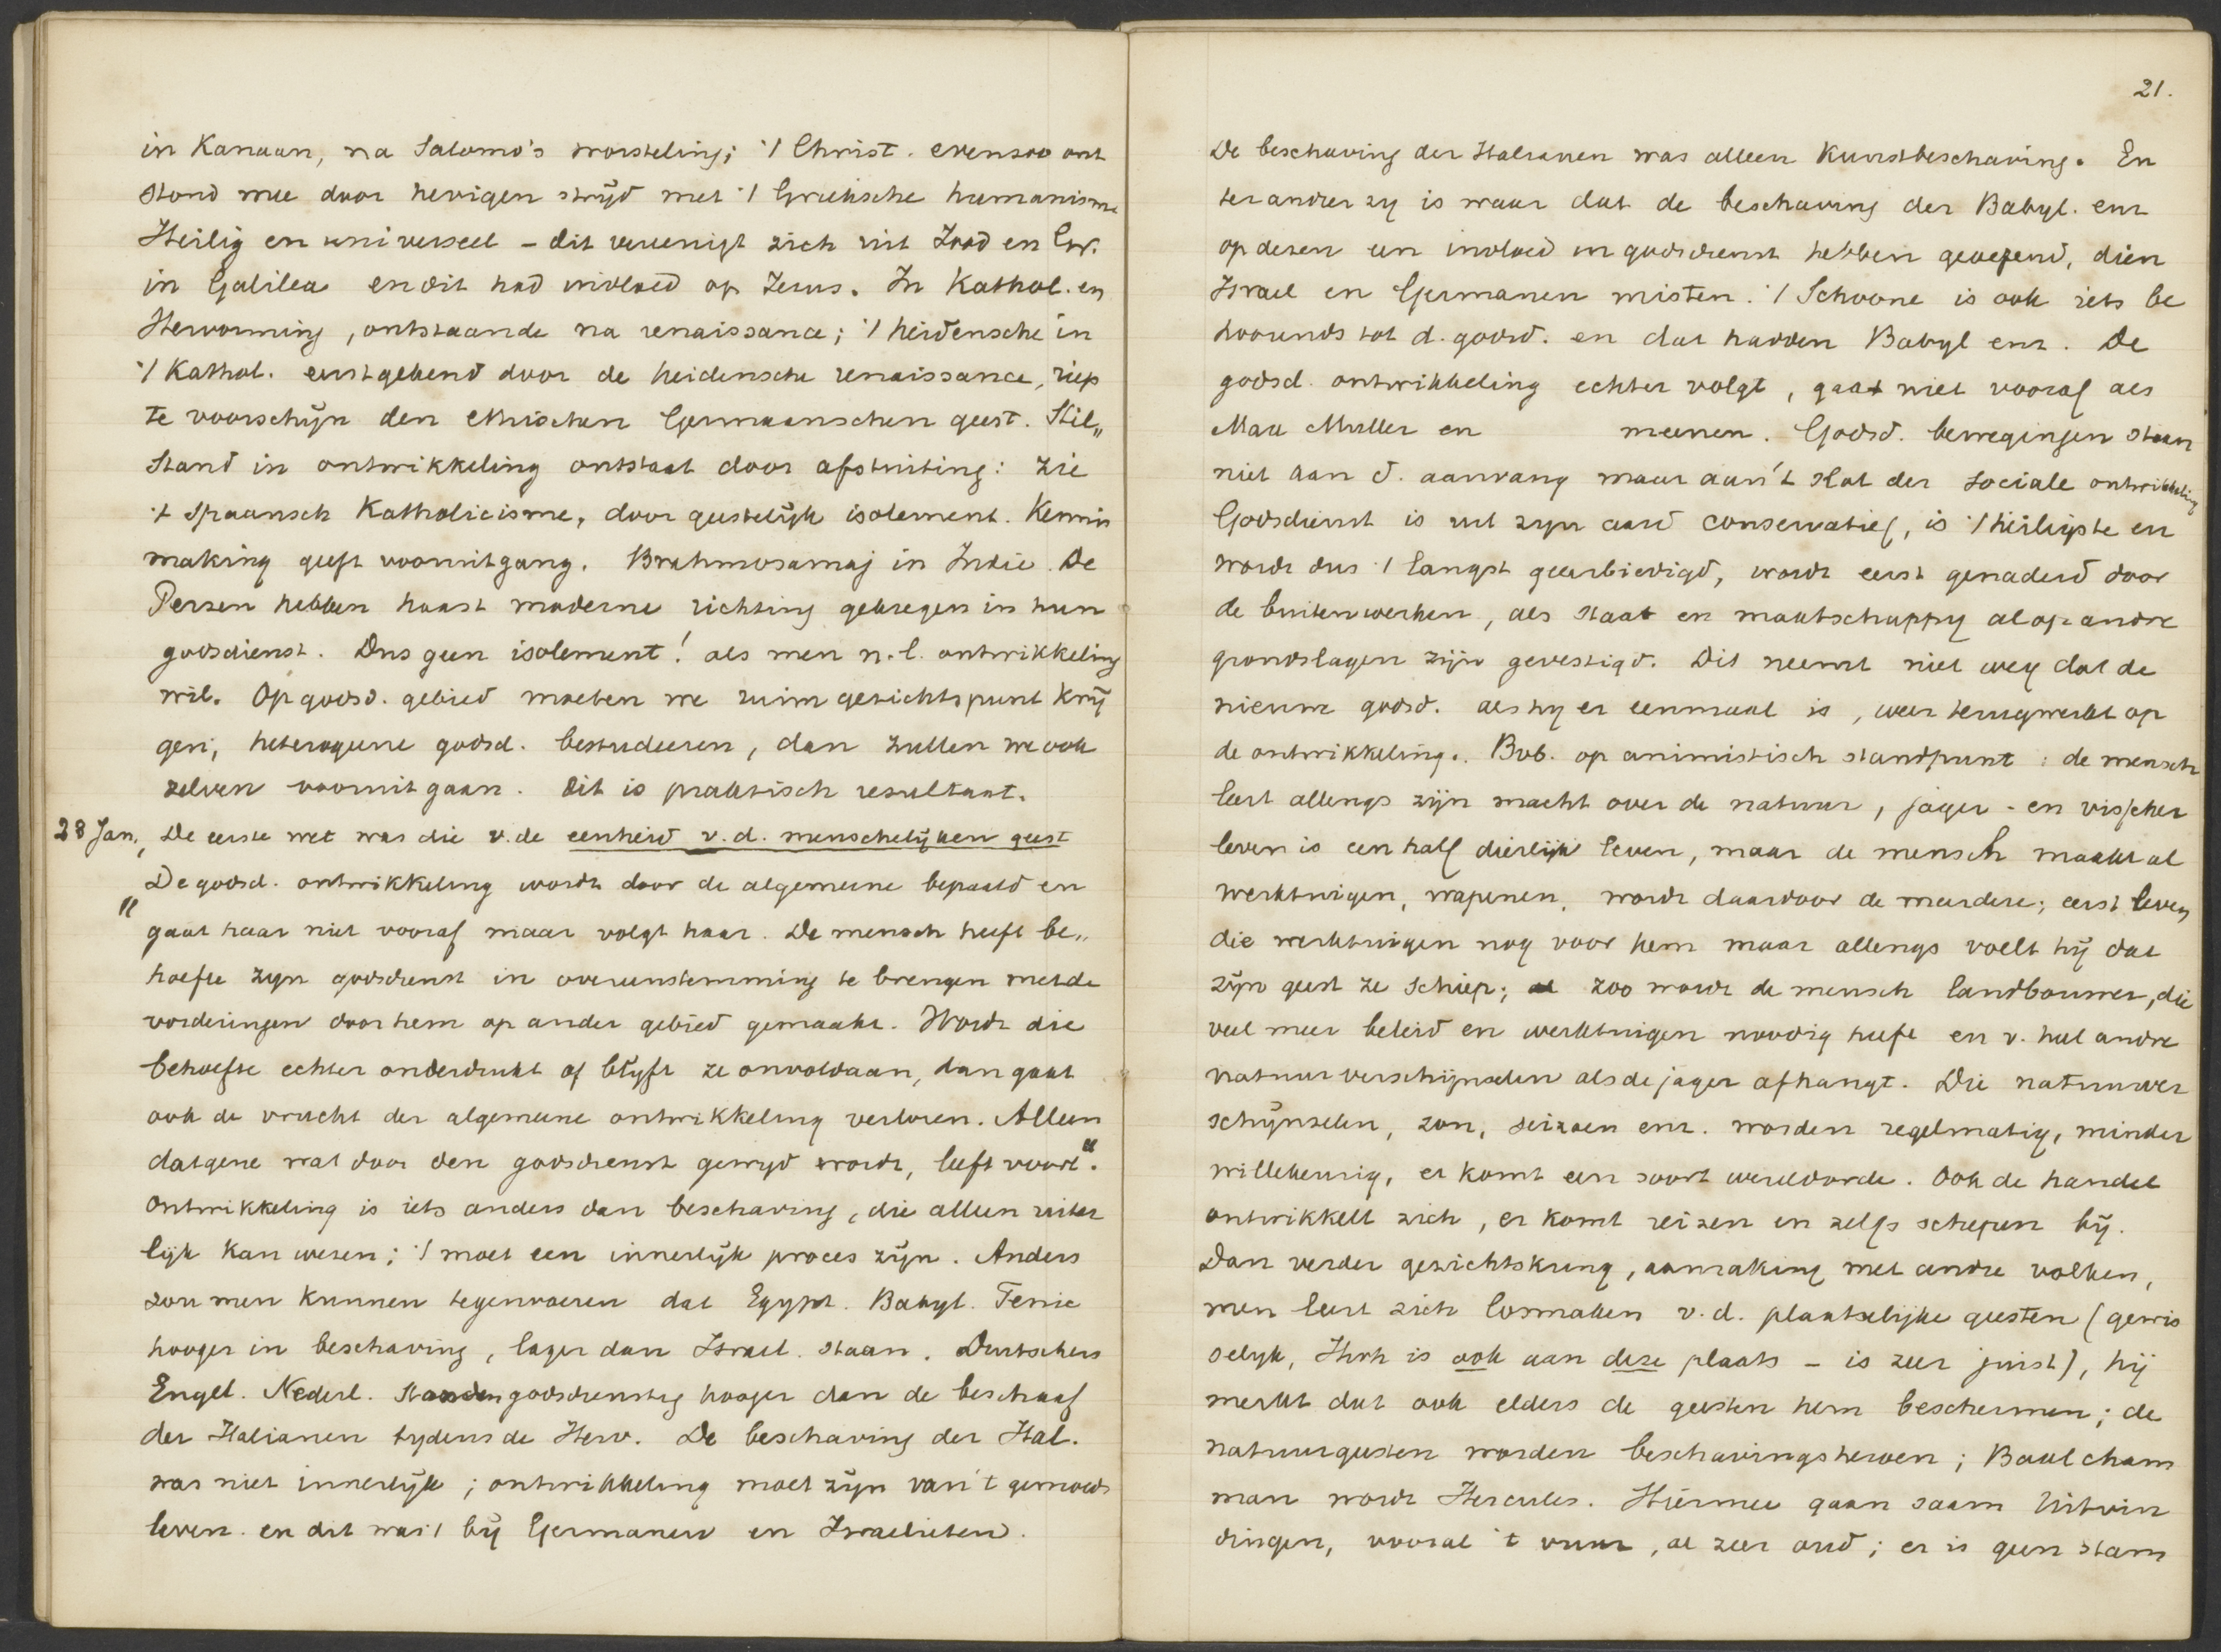 in Kanaan, na Salomo's worsteling; 't Christ. evenzoo ont
stond mee door hevigen strijd met 't Grieksche humanisme
Heilig en universeel – dit vereenigt zich uit Jood en Gr.
in Galilea en dit had invloed op Jezus. In Kathol. en
Hervorming, ontstaande na renaissance; 't heidensche in
't Kathol. eerst gekend door de heidensche renaissance, riep
te voorschijn den ethischen Germaanschen geest. Stil„
stand in ontwikkeling ontstaat door afsluiting: zie
't Spaansch Katholicisme, door geestelijk isolement. Kennis
making geeft vooruitgang. Brahmosamaj in Indie. De
Perzen hebben haast moderne richting gekregen in hun
godsdienst. Dus geen isolement! als men n.l. ontwikkeling
wil. Op godsd. gebied moeten we ruim gezichtspunt krij
gen, heterogene godsd. bestudeeren, dan zullen we ook
zelven vooruitgaan. Dit is praktisch resultaat.
28 Jan. De eerste wet was die v. de eenheid v.d. menschelijken geest
„De godsd. ontwikkeling wordt door de algemeene bepaald en
gaat haar niet vooraf maar volgt haar. De mensch heeft be„
hoefte zyn godsdienst in overeenstemming te brengen met de
vorderingen door hem op ander gebied gemaakt. Wordt die
behoefte echter onderdrukt of blijft ze onvoldaan, dan gaat
ook de vrucht der algemeene ontwikkeling verloren. Alleen
datgene wat door den godsdienst gewyd wordt, leeft voort".
Ontwikkeling is iets anders dan beschaving, die alleen uiter
lijk kan wezen; 't moet een innerlijk proces zijn. Anders
zou men kunnen tegenvoeren dat Egypt. Babyl. Fenic
hooger in beschaving, lager dan Israel. staan. Duitschers
Engel. Nederl. stonden godsdienstig hooger dan de beschaaf
der Italianen tydens de Herv. De beschaving der Ital.
was niet innerlijk; ontwikkeling moet zijn van 't gemoeds
leven. en dit was 't bij Germanen en Israelieten.
21.
De beschaving der Italianen was alleen Kunstbeschaving. En
ter ander zy is waar dat de beschaving der Babyl. enz
op dezen een invloed in godsdienst hebben geoefend, dien
Israel en Germanen misten. 't Schoone is ook iets be
hoorends tot d. godsd. en dat hadden Babyl enz. De
godsd. ontwikkeling echter volgt, gaat niet vooraf als
Max Muller en meenen. Godsd. bewegingen staan
niet aan d. aanvang maar aan 't slot der sociale ontwikkeling
Godsdienst is uit zyn aard conservatief, is 't heiligste en
wordt dus 't langst geeerbiedigd, wordt eerst genaderd door
de buitenwerken, als staat en maatschappy al op andre
grondslagen zijn gevestigd. Dit neemt niet weg dat de
nieuwe godsd. als hy er eenmaal is, weer terugwerkt op
de ontwikkeling. Bvb. op animistisch standpunt: de mensch
leert allengs zijn macht over de natuur, jager- en visscher
leven is een half dierlijk leven, maar de mensch maakt al
werktuigen, wapenen, wordt daardoor de meerdere; eerst leven
die werktuigen nog voor hem maar allengs voelt hij dat
zijn geest ze schiep; zoo wordt de mensch landbouwer, die
veel meer beleid en werktuigen noodig heeft en v. heel andre
natuurverschijnselen als de jager afhangt. Die natuurver
schijnselen, zon, seizoen enz. worden regelmatig, minder
willekeurig, er komt een soort wereldorde. Ook de handel
ontwikkelt zich, er komt reizen en zelfs schepen bij.
Dan verder gezichtskring, aanraking met andre volken,
men leert zich losmaken v.d. plaatselijke geesten (gewis
selyk, Jhvh is ook aan deze plaats – is zeer juist), hij
merkt dat ook elders de geesten hem beschermen; de
natuurgeesten worden beschavingsheroen; Baal cham
man wordt Hercules. Hiermee gaan saam Uitvin
dingen, vooral 't vuur, al zeer oud; er is geen stam